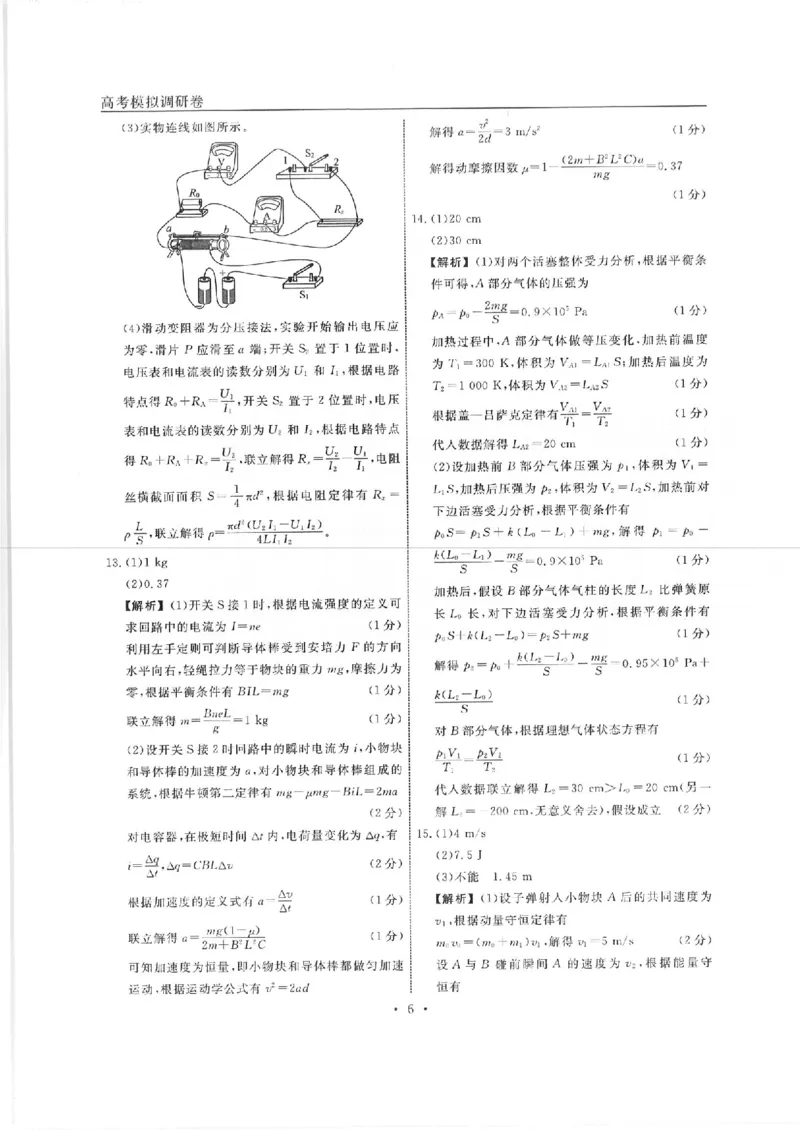 高考模拟调研卷
(3)实物连线如图所示。
V
S₂
1
2
R₀
A
Rₓ
a
b
S₁
(4)滑动变阻器为分压接法,实验开始输出电压应
为零,滑片 P 应滑至 a 端;开关 S₂ 置于 1 位置时,
电压表和电流表的读数分别为 U₁ 和 I₁,根据电路
特点得 R₀+R_A=U₁/I₁,开关 S₂ 置于 2 位置时,电压
表和电流表的读数分别为 U₂ 和 I₂,根据电路特点
得 R₀+R_A+Rₓ=U₂/I₂,联立解得 Rₓ=U₂/I₂-U₁/I₁,电阻
丝横截面面积 S=1/4πd²,根据电阻定律有 Rₓ=
ρL/S,联立解得 ρ=πd²(U₂I₁-U₁I₂)/4LI₁I₂。
13.(1)1 kg
(2)0.37
【解析】(1)开关 S 接 1 时,根据电流强度的定义可
求回路中的电流为 I=ne (1分)
利用左手定则可判断导体棒受到安培力 F 的方向
水平向右,轻绳拉力等于物块的重力 mg,摩擦力为
零,根据平衡条件有 BIL=mg (1分)
联立解得 m=BneL/g=1 kg (1分)
(2)设开关 S 接 2 时回路中的瞬时电流为 i,小物块
和导体棒的加速度为 a,对小物块和导体棒组成的
系统,根据牛顿第二定律有 mg-μmg-BiL=2ma
(2分)
对电容器,在极短时间 Δt 内,电荷量变化为 Δq,有
i=Δq/Δt,Δq=CBLΔv (2分)
根据加速度的定义式有 a=Δv/Δt (1分)
联立解得 a=mg(1-μ)/2m+B²L²C (1分)
可知加速度为恒量,即小物块和导体棒都做匀加速
运动,根据运动学公式有 v²=2ad
解得 a=v²/2d=3 m/s² (1分)
解得动摩擦因数 μ=1-(2m+B²L²C)a/mg=0.37
(1分)
14.(1)20 cm
(2)30 cm
【解析】(1)对两个活塞整体受力分析,根据平衡条
件可得,A 部分气体的压强为
p_A=p₀-2mg/S=0.9×10⁵ Pa (1分)
加热过程中,A 部分气体做等压变化,加热前温度
为 T₁=300 K,体积为 V_A1=L_A1S;加热后温度为
T₂=1 000 K,体积为 V_A2=L_A2S (1分)
根据盖—吕萨克定律有V_A1/T₁=V_A2/T₂ (1分)
代入数据解得 L_A2=20 cm (1分)
(2)设加热前 B 部分气体压强为 p₁,体积为 V₁=
L₁S,加热后压强为 p₂,体积为 V₂=L₂S,加热前对
下边活塞受力分析,根据平衡条件有
p₀S=p₁S+k(L₀-L₁)+mg,解得 p₁=p₀-
k(L₀-L₁)/S-mg/S=0.9×10⁵ Pa (1分)
加热后,假设 B 部分气体气柱的长度 L₂ 比弹簧原
长 L₀ 长,对下边活塞受力分析,根据平衡条件有
p₀S+k(L₂-L₀)=p₂S+mg (1分)
解得 p₂=p₀+k(L₂-L₀)/S-mg/S=0.95×10⁵ Pa+
k(L₂-L₀)/S (1分)
对 B 部分气体,根据理想气体状态方程有
p₁V₁/T₁=p₂V₂/T₂ (1分)
代入数据联立解得 L₂=30 cm>L₀=20 cm(另一
解 L₂=-200 cm,无意义舍去),假设成立 (2分)
15.(1)4 m/s
(2)7.5 J
(3)不能 1.45 m
【解析】(1)设子弹射入小物块 A 后的共同速度为
v₁,根据动量守恒定律有
m₀v₀=(m₀+m₁)v₁,解得 v₁=5 m/s (2分)
设 A 与 B 碰前瞬间 A 的速度为 v₂,根据能量守
恒有
• 6 •